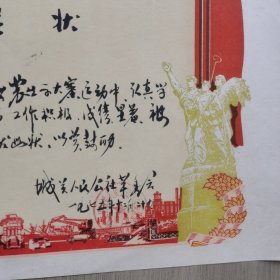 状
农业学大寨运动中，认真学
工作积极，成绩显著，被
状，以资鼓励。
城关人民公社革委会
一九七五年十二月